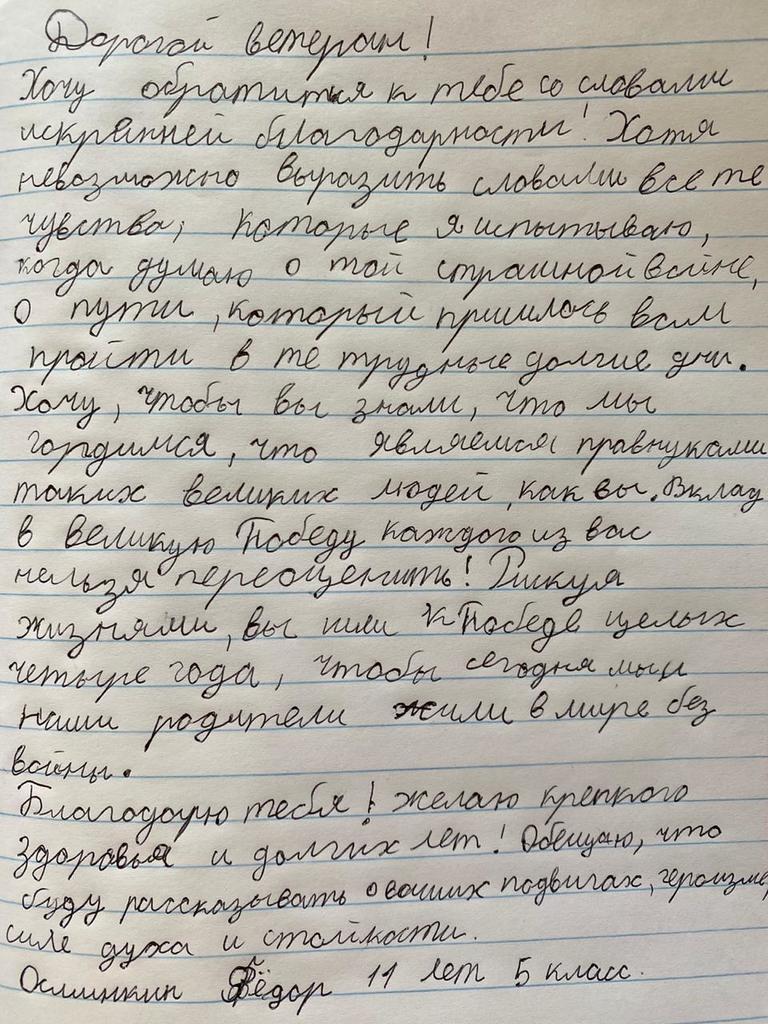 Дорогой ветеран!
Хочу обратиться к тебе со словами
искренней благодарности! Хотя
невозможно выразить словами все те
чувства, которые я испытываю,
когда думаю о той страшной войне,
о пути, который пришлось вам
пройти в те трудные долгие дни.
Хочу, чтобы вы знали, что мы
гордимся, что являемся правнуками
таких великих людей, как вы. Вклад
в великую Победу каждого из вас
нельзя переоценить! Рискуя
жизнями, вы шли к Победе целых
четыре года, чтобы сегодня мы и
наши родители жили в мире без
войны.
Благодарю тебя! желаю крепкого
здоровья и долгих лет! Обещаю, что
буду рассказывать о ваших подвигах, героизме,
силе духа и стойкости.
Осминкин Фёдор 11 лет 5 класс.